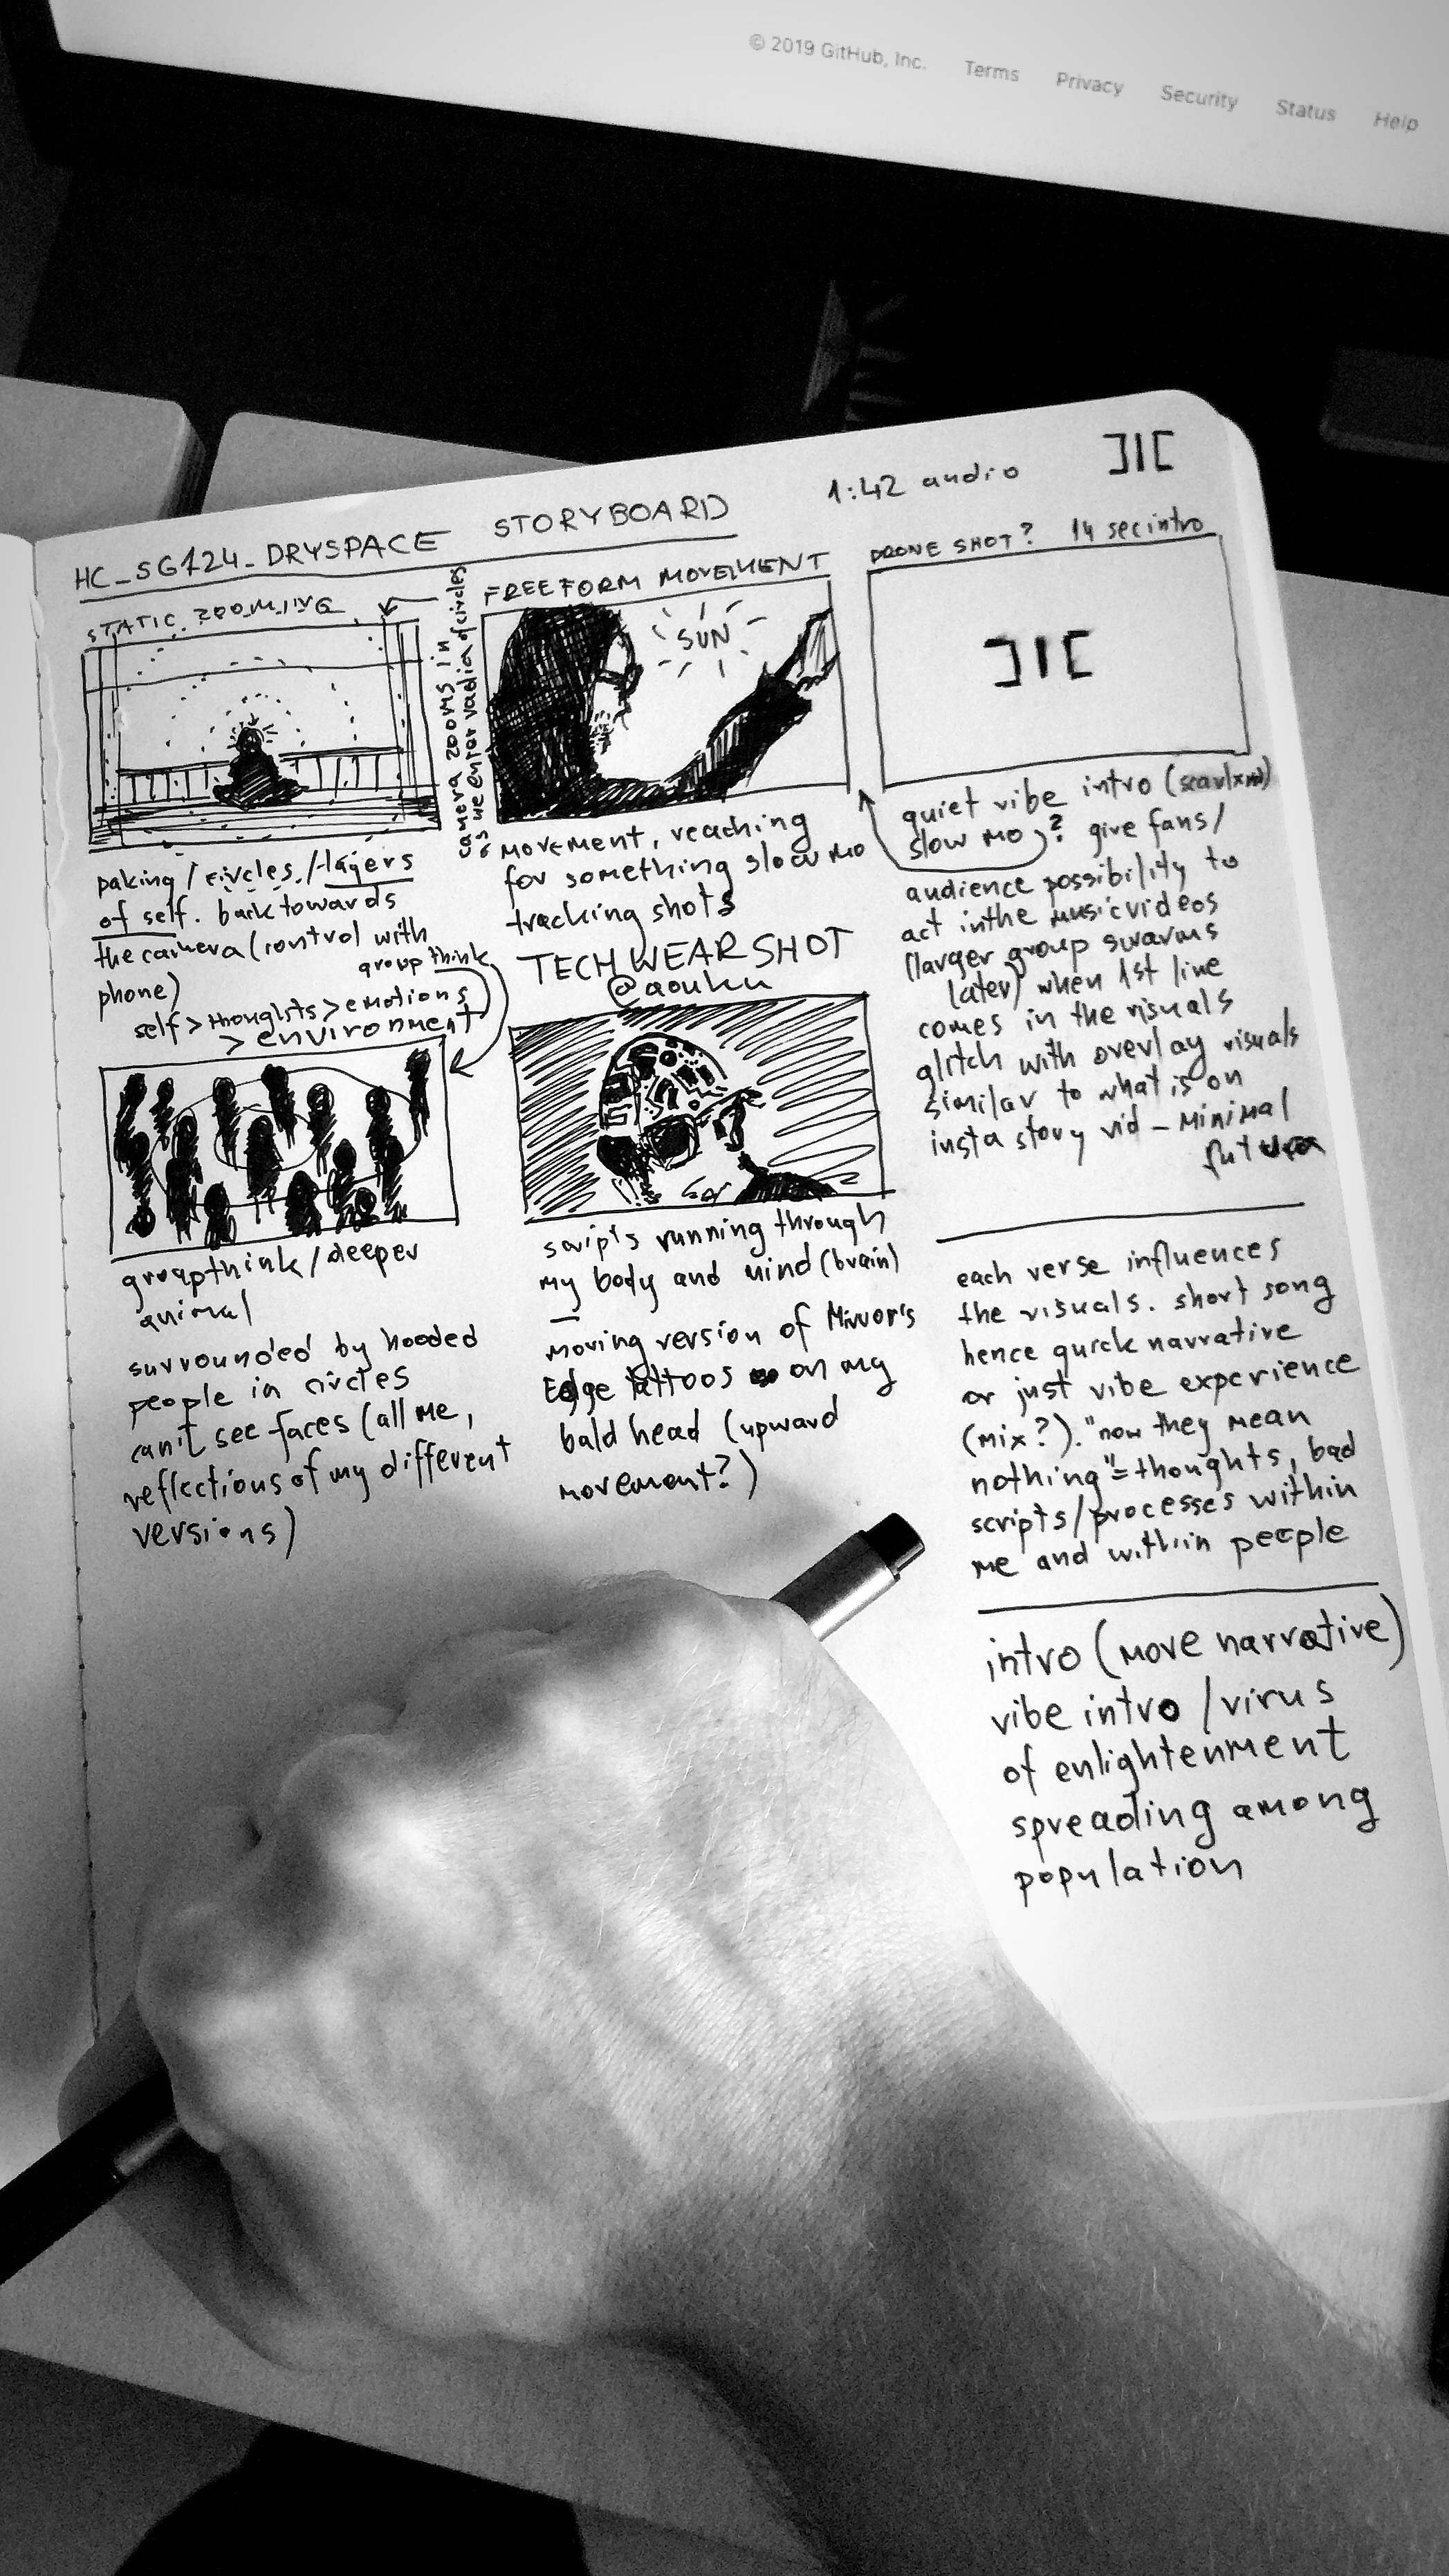 © 2019 GitHub, Inc. Terms Privacy Security Status Help
HC_SG124_DRYSPACE STORYBOARD
1:42 audio
STATIC ZOOMING
camera zooms in
as we enter radia of circles
paking / circles / layers
of self. back towards
the camera (control with
phone)
group think
self > thoughts > emotions
> environment
groupthink / deeper
animal
surrounded by hooded
people in circles
can't see faces (all me,
reflections of my different
versions)
FREEFORM MOVEMENT
SUN
movement, reaching
for something slow mo
tracking shots
TECHWEAR SHOT
@aouku
scripts running through
my body and mind (brain)
moving version of Mirror's
Edge tattoos on my
bald head (upward
movement?)
DRONE SHOT? 14 sec intro
quiet vibe intro
slow mo? give fans/
audience possibility to
act in the music videos
(larger group swarms
later) when 1st line
comes in the visuals
glitch with overlay visuals
similar to what is on
insta story vid - minimal
futura
each verse influences
the visuals. short song
hence quick narrative
or just vibe experience
(mix?). "now they mean
nothing" = thoughts, bad
scripts/processes within
me and within people
intro (more narrative)
vibe intro / virus
of enlightenment
spreading among
population